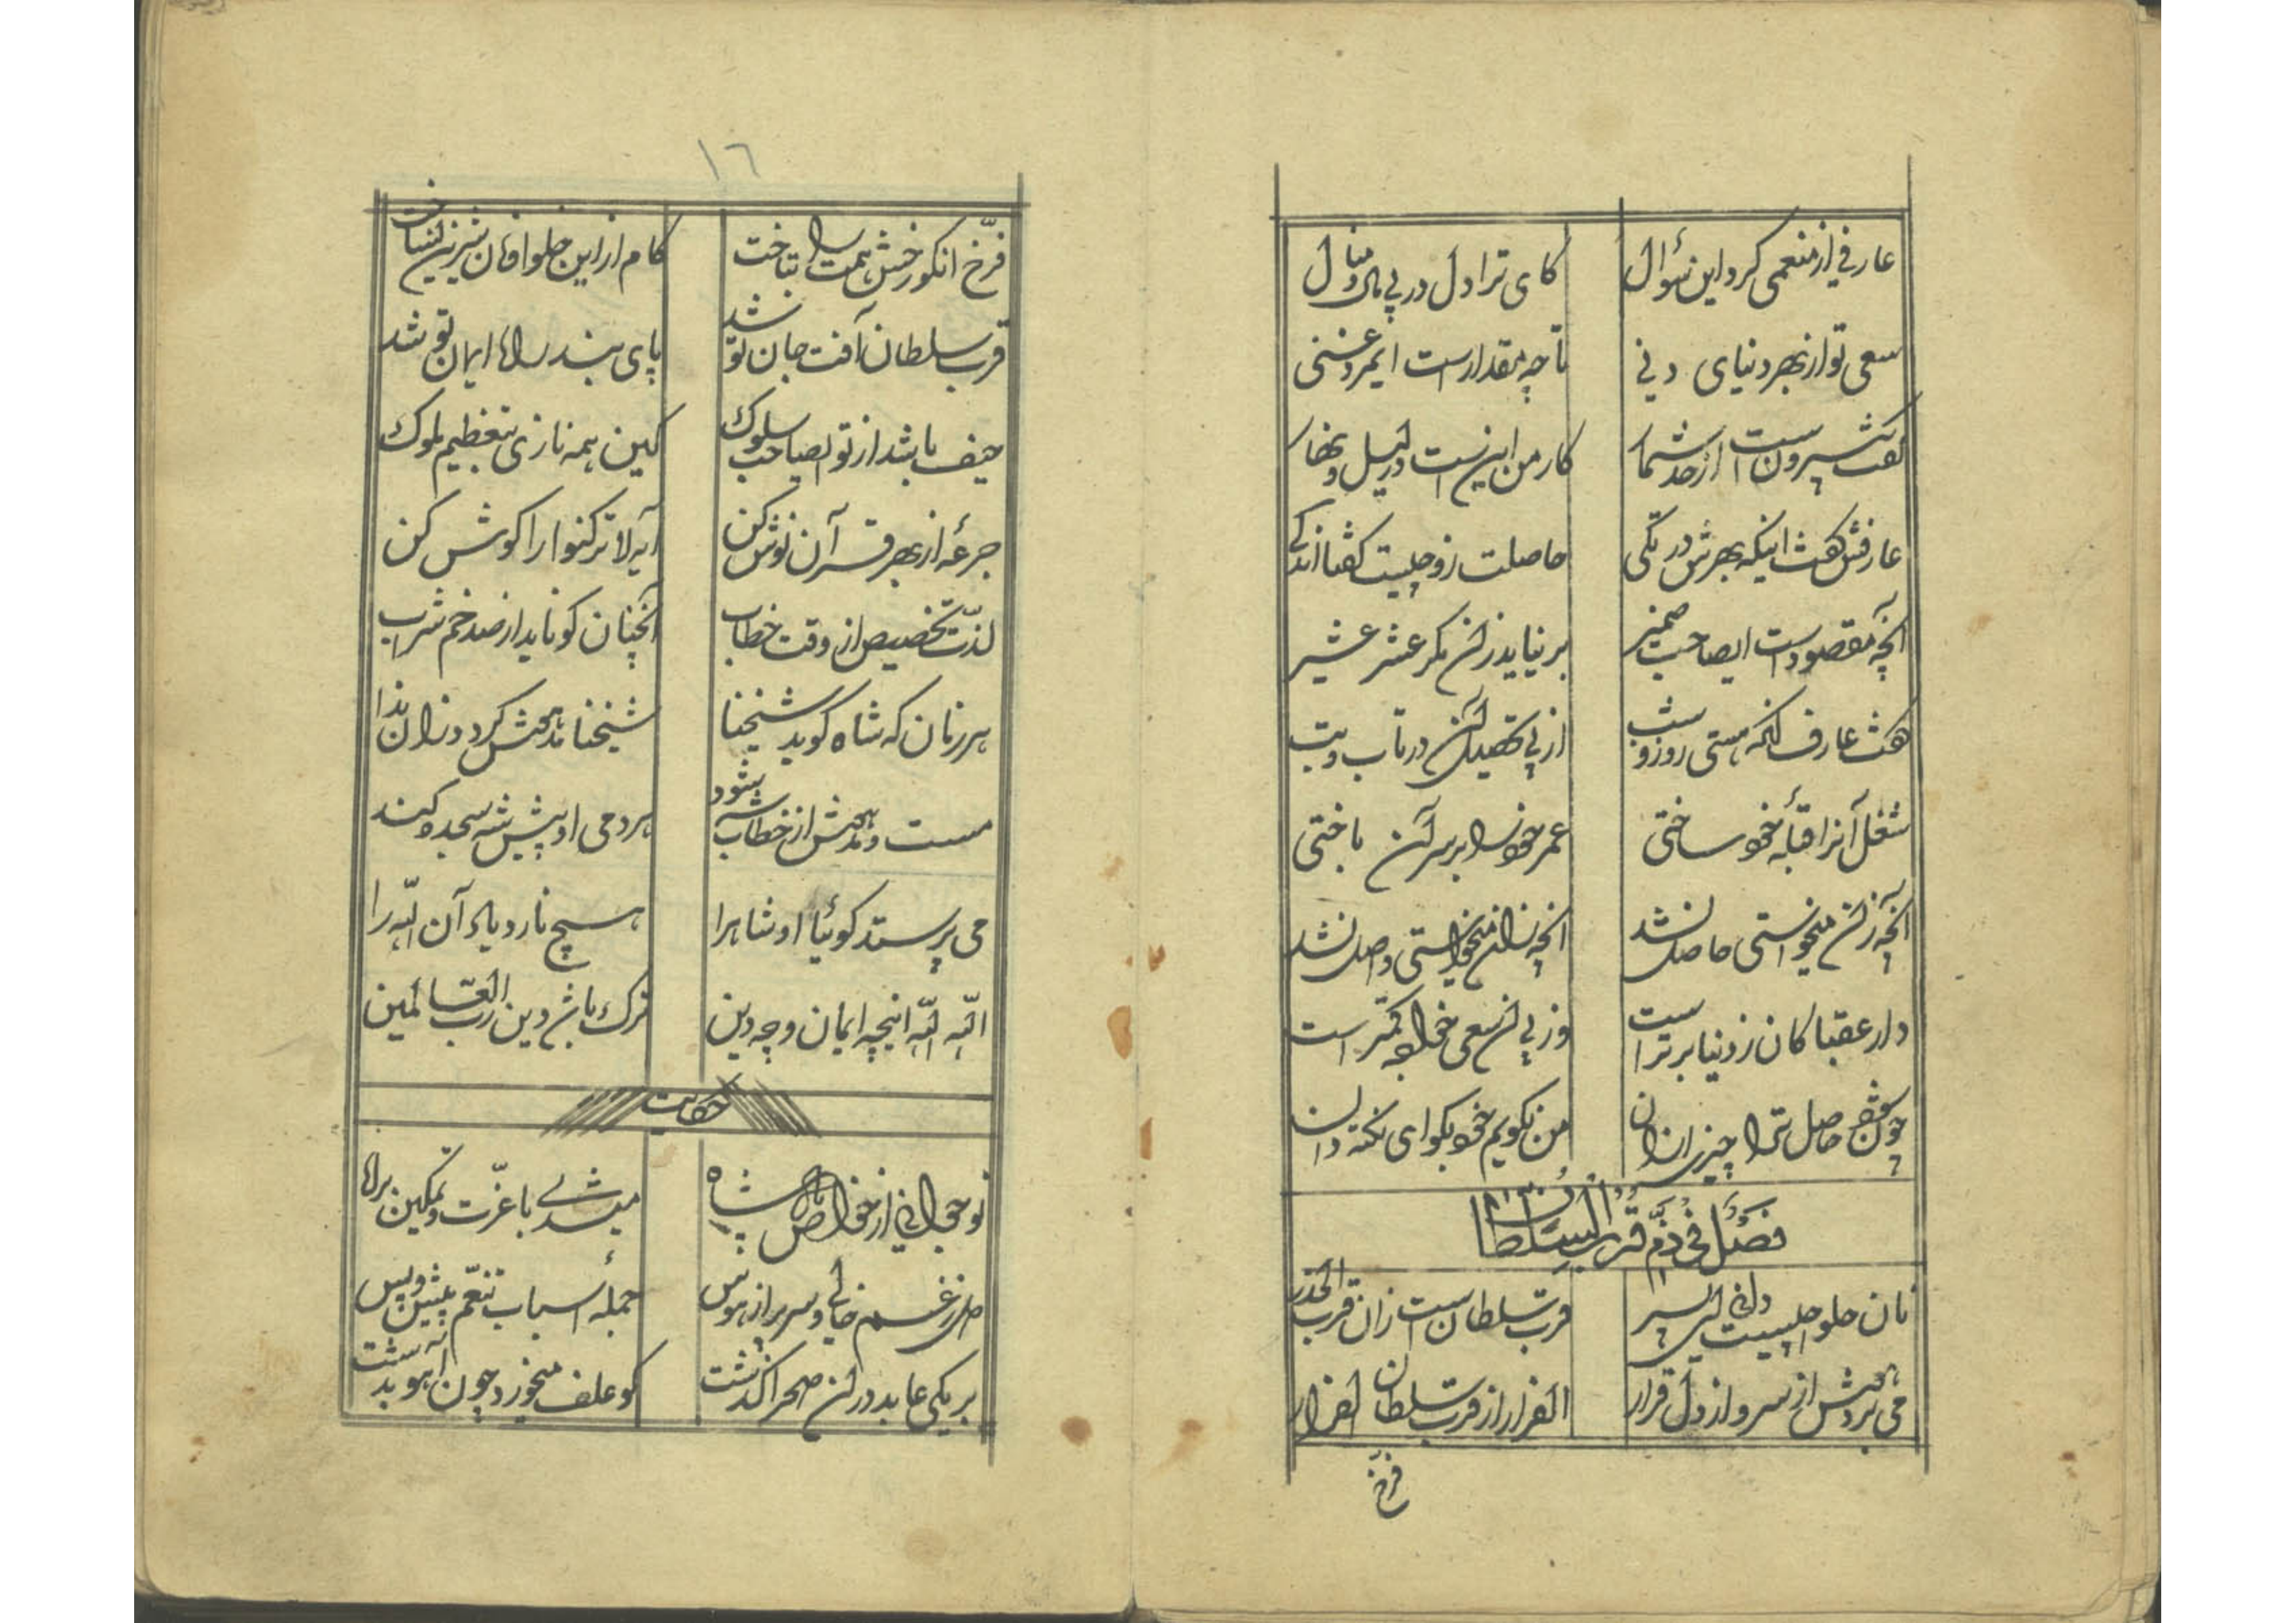 عارفی از منعمی کرد این سؤال کای ترا دل در پی مال و منال
سعی تو از بهر دنیای دنی تا چه مقدار است ایمرد غنی
گفت بیرونست از حد شمار کار من اینست در لیل و نهار
عارفش گفت اینکه بهرش در تکی حاصلت زو چیست گفتا اندکی
آنچه مقصود است ایصاحب ضمیر برنیاید زان مگر عشر عشیر
گفت عارف آنکه هستی روز و شب از پی تحصیل آن در تاب و تب
شغل آنرا قبله خود ساختی عمر خود را بر سر آن باختی
آنچه زان میخواستی حاصل نشد آنچه زان میخواستی واصل نشد
دار عقبا کان ز دنیا برتر است وز پی آن سعی خواجه کمتر است
چون شود حاصل ترا چیزی از آن من نگویم خود بگو ای نکته دان
فصل فی ذم قرب السلطان
نان حلوا چیست دانی ای پسر قرب سلطان است زان قرب الحذر
می برد هوش از سر و از دل قرار الفرار از قرب سلطان الفرار
فرخ
١٦
فرّخ آنکو رخش همت را بتاخت کام از این حلوا و نان شیرین نساخت
قرب سلطان آفت جان تو شد پای بند راه ایمان تو شد
حیف باشد از تو ایصاحب سلوک کین همه نازی بتعظیم ملوک
جرعهٔ از بهر قرآن نوش کن آیه لا ترکنوا را گوش کن
لذت تخصیص از وقت خطاب آنچنان کو ناید از صد خم شراب
هر زمان که شاه گوید شیخنا شیخنا مدهش گردد زان ندا
مست و مدهش از خطاب شه شود هر دمی او پیش شه سجده کند
می پرستد گوئیا او شاهرا هیچ نارد یاد آن الله را
الله الله اینچه ایمان و چه دین ترک باش دین رب العالمین
حکایت
نوجوانی از خواص پادشاه میشدی با عزّت و تمکین براه
دل ز غم خالی و سر پر از هوس جملهٔ اسباب تنعّم پیش و پس
بر یکی عابد در آن صحرا گذشت کو علف میخورد چون آهو بدشت